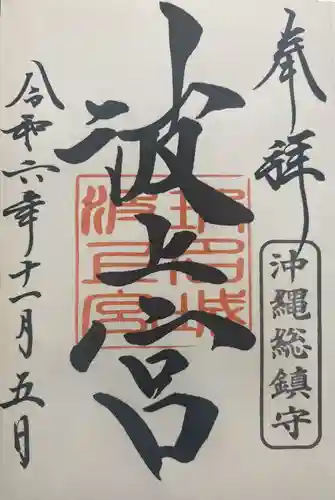 奉拝
沖縄総鎮守
波上宮
令和六年十一月五日